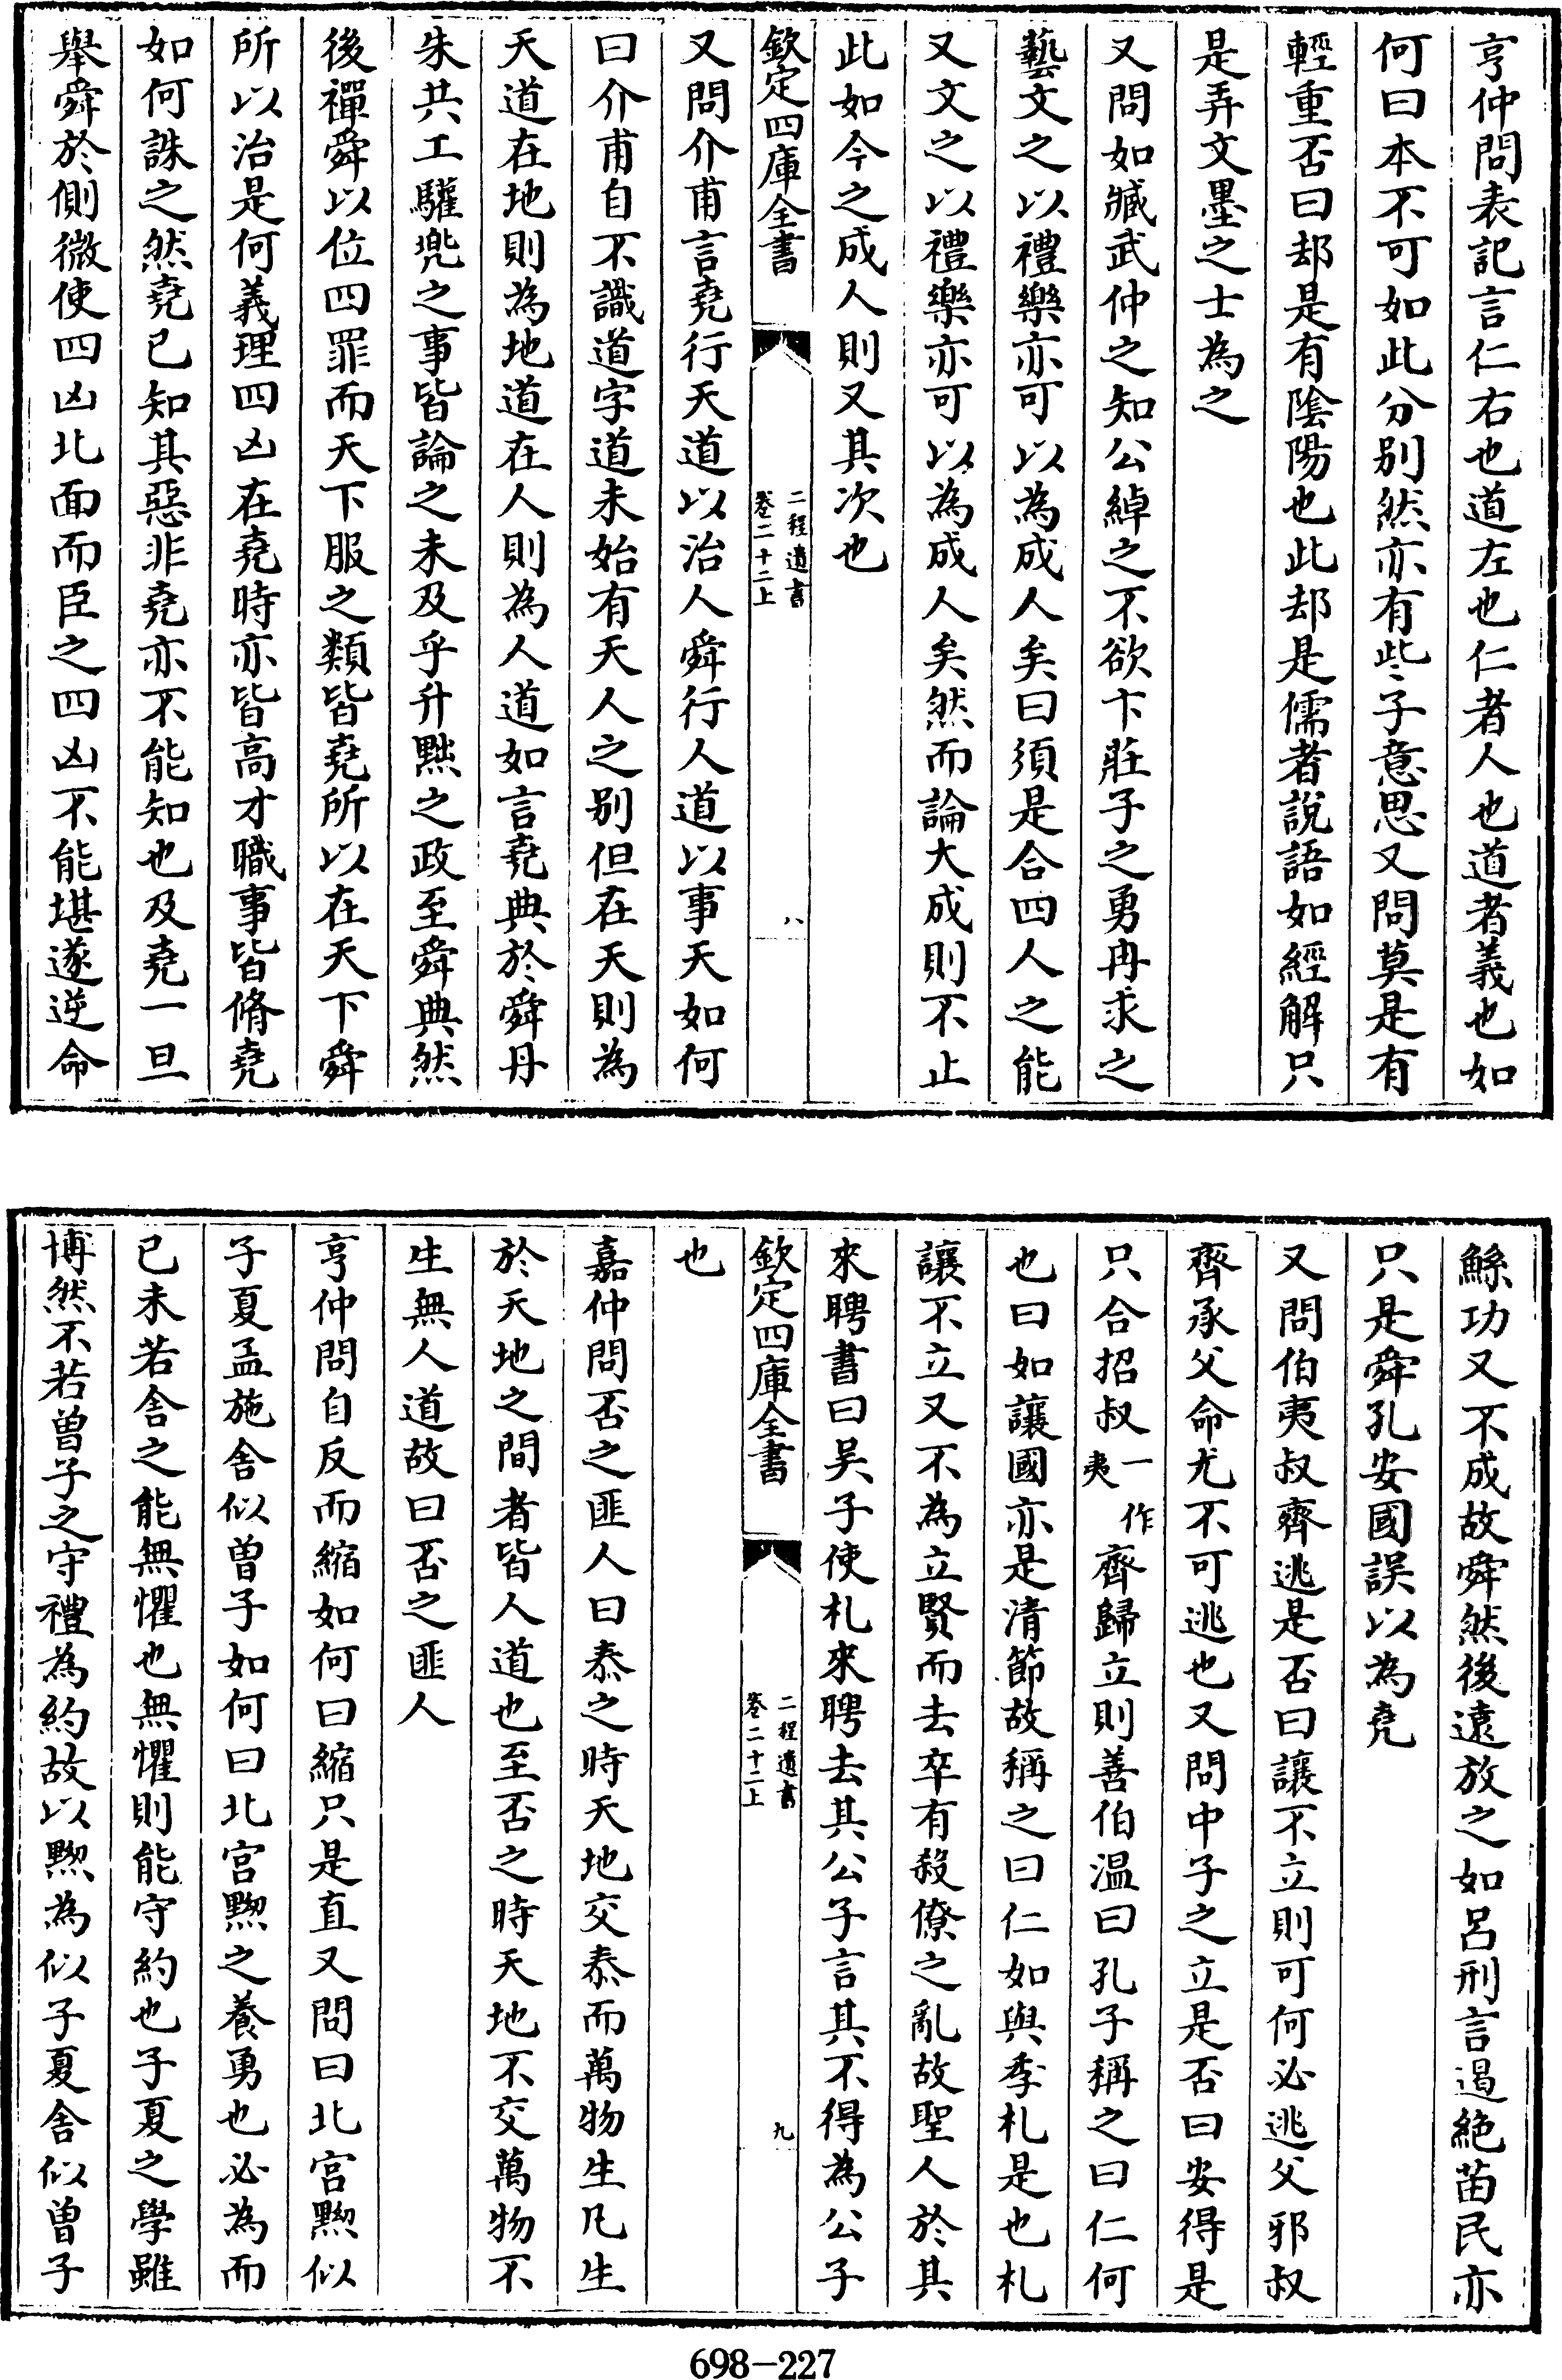 亨仲問表記言仁右也道左也仁者人也道者義也如
何曰本不可如此分别然亦有些子意思又問莫是有
輕重否曰却是有隂陽也此却是儒者說語如經解只
是弄文墨之士為之
又問如臧武仲之知公綽之不欲卞莊子之勇冉求之
藝文之以禮樂亦可以為成人矣曰須是合四人之能
又文之以禮樂亦可以為成人矣然而論大成則不止
此如今之成人則又其次也
欽定四庫全書
二程遺書
卷二十二上
八
又問介甫言堯行天道以治人舜行人道以事天如何
曰介甫自不識道字道未始有天人之别但在天則為
天道在地則為地道在人則為人道如言堯典於舜丹
朱共工驩兠之事皆論之未及乎升黜之政至舜典然
後禪舜以位四罪而天下服之類皆堯所以在天下舜
所以治是何義理四凶在堯時亦皆高才職事皆脩堯
如何誅之然堯已知其惡非堯亦不能知也及堯一旦
舉舜於側微使四凶北面而臣之四凶不能堪遂逆命
鯀功又不成故舜然後遠放之如呂刑言遏絶苗民亦
只是舜孔安國誤以為堯
又問伯夷叔齊逃是否曰讓不立則可何必逃父邪叔
齊承父命尤不可逃也又問中子之立是否曰安得是
只合招叔一作夷齊歸立則善伯温曰孔子稱之曰仁何
也曰如讓國亦是清節故稱之曰仁如與季札是也札
讓不立又不為立賢而去卒有殺僚之亂故聖人於其
來聘書曰吴子使札來聘去其公子言其不得為公子
也
欽定四庫全書
二程遺書
卷二十二上
九
嘉仲問否之匪人曰泰之時天地交泰而萬物生凡生
於天地之間者皆人道也至否之時天地不交萬物不
生無人道故曰否之匪人
亨仲問自反而縮如何曰縮只是直又問曰北宫黝似
子夏孟施舍似曾子如何曰北宫黝之養勇也必為而
已未若舍之能無懼也無懼則能守約也子夏之學雖
博然不若曾子之守禮為約故以黝為似子夏舍似曾子
698-227